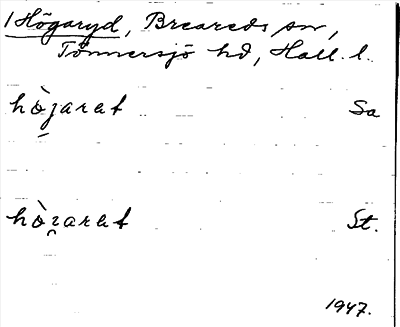 1 Högaryd, Breareds sn,
Tönnersjö hd, Hall. l.
hòjarat Sa
hòɀarat St.
1947.